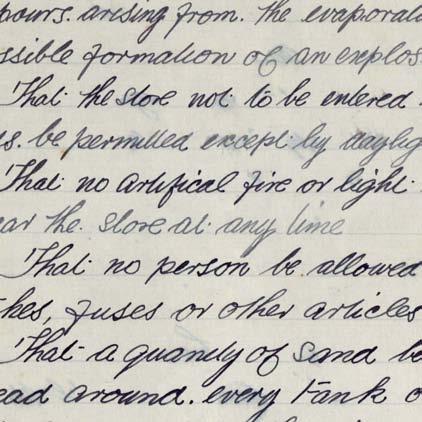 pours arising from. the evaporati
ssible formation of an explos
That the store not to be entered
s. be permitted except by daylig
That no artifical fire or light
ar the. store at any time
That no person be allowed
hes, fuses or other articles
That a quandy of Sand be
ead around. every tank o